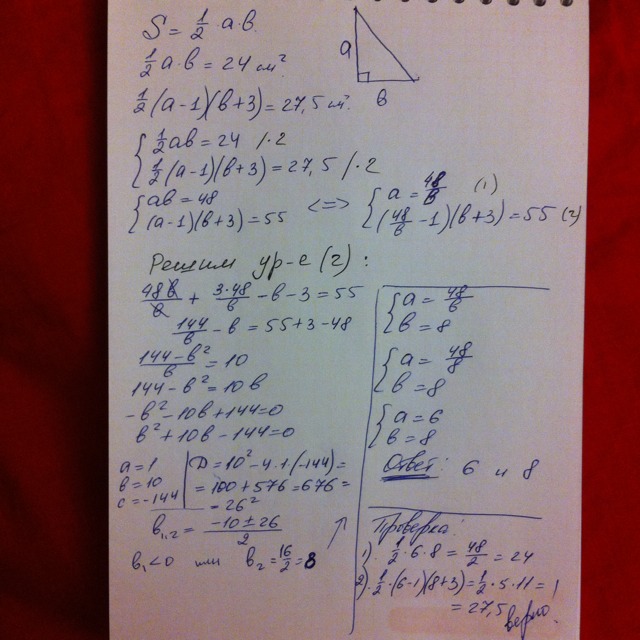 S = 1/2 · a · в.
a
в
1/2 a · в = 24 см².
1/2 (a-1)(в+3) = 27,5 м².
{ 1/2 aв = 24 / · 2
1/2 (a-1)(в+3) = 27,5 / · 2
{ aв = 48
(a-1)(в+3) = 55
<=>
{ a = 48/в (1)
(48/в - 1)(в+3) = 55 (2)
Решим ур-е (2):
48в/в + 3·48/в - в - 3 = 55
144/в - в = 55+3-48
144-в²/в = 10
144 - в² = 10в
-в² - 10в + 144 = 0
в² + 10в - 144 = 0
a = 1
в = 10
c = -144
D = 10² - 4·1·(-144) =
= 100 + 576 = 676 =
= 26²
в1,2 = -10 ± 26/2
в1 < 0 или в2 = 16/2 = 8
{ a = 48/в
в = 8
{ a = 48/8
в = 8
{ a = 6
в = 8
Ответ: 6 и 8
Проверка:
1). 1/2 · 6 · 8 = 48/2 = 24
2). 1/2 · (6-1)(8+3) = 1/2 · 5 · 11 =
= 27,5
верно!